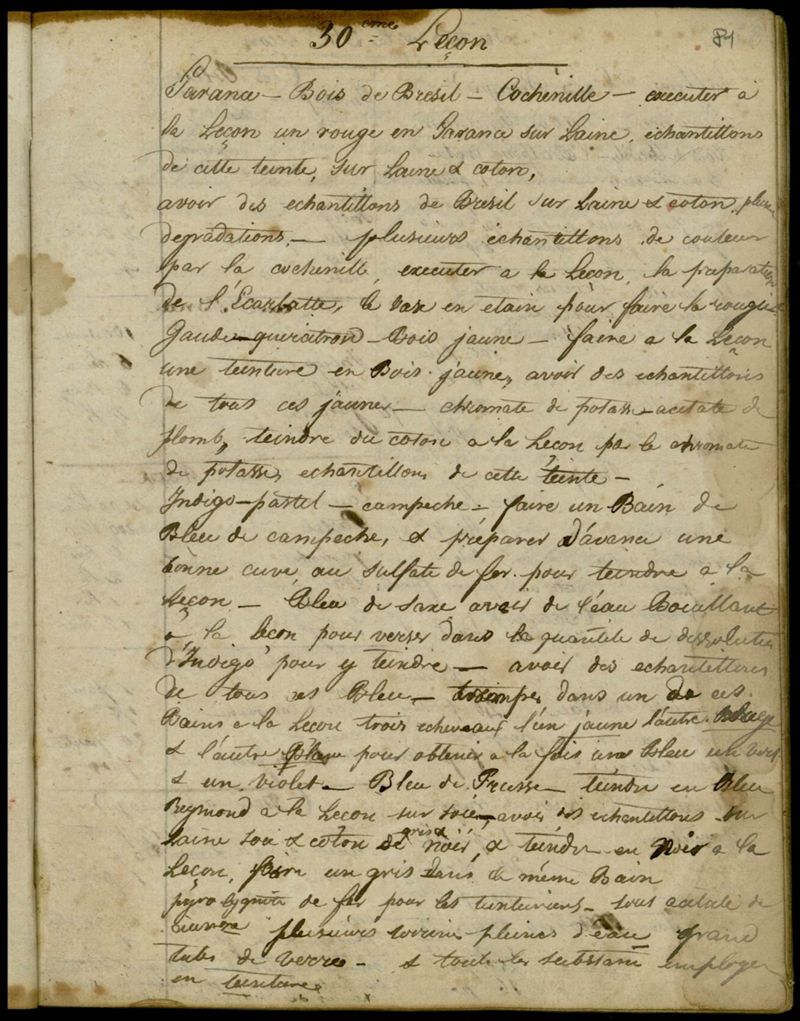 30eme Leçon
84
Garance - Bois de Bresil - Cochenille - executer a
la Leçon un rouge en Garance sur Laine, echantillons
de cette teinte, sur Laine & coton,
avoir des echantillons de Bresil sur Laine & coton,
degradations, - plusieurs echantillons de couleur
par la cochenille, executer a la Lecon, la preparation
de l'Ecarlatte, le vase en etain pour faire le rouge
Gaude - quercitron - Bois jaune - faire a la Leçon
une teinture en Bois jaune, avoir des echantillons
de tous ces jaunes - chromate de potasse - acetate de
plomb, teindre du coton a la Lecon par le chromate
de potasse, echantillons de cette teinte -
Indigo - pastel - campeche - faire un Bain de
Bleu de campeche, & préparer d'avance une
bonne cuve au sulfate de fer pour teindre a la
Leçon - Bleu de Saxe avoir de l'eau Bouillant
a la lecon pour verser dans la quantité de dissolution
d'Indigo pour y teindre - avoir des echantillons
de tous ces Bleu - tremper dans un de ces
Bains a la Lecon trois echeveaux l'un jaune l'autre
& l'autre pour obtenir a la fois un Bleu un vert
& un violet - Bleu de Prusse - teindre en Bleu
Reymond a la Lecon sur soie, avoir des echantillons sur
Laine soie & coton de gris & noir, & teindre en Noir a la
Lecon, faire un gris dans le même Bain
pyrolignite de fer pour les teinturiers - sous acetate de
cuivre plusieurs terrines pleines d'eau grand
tubes de verre - & toutes les substances employer
en teinture